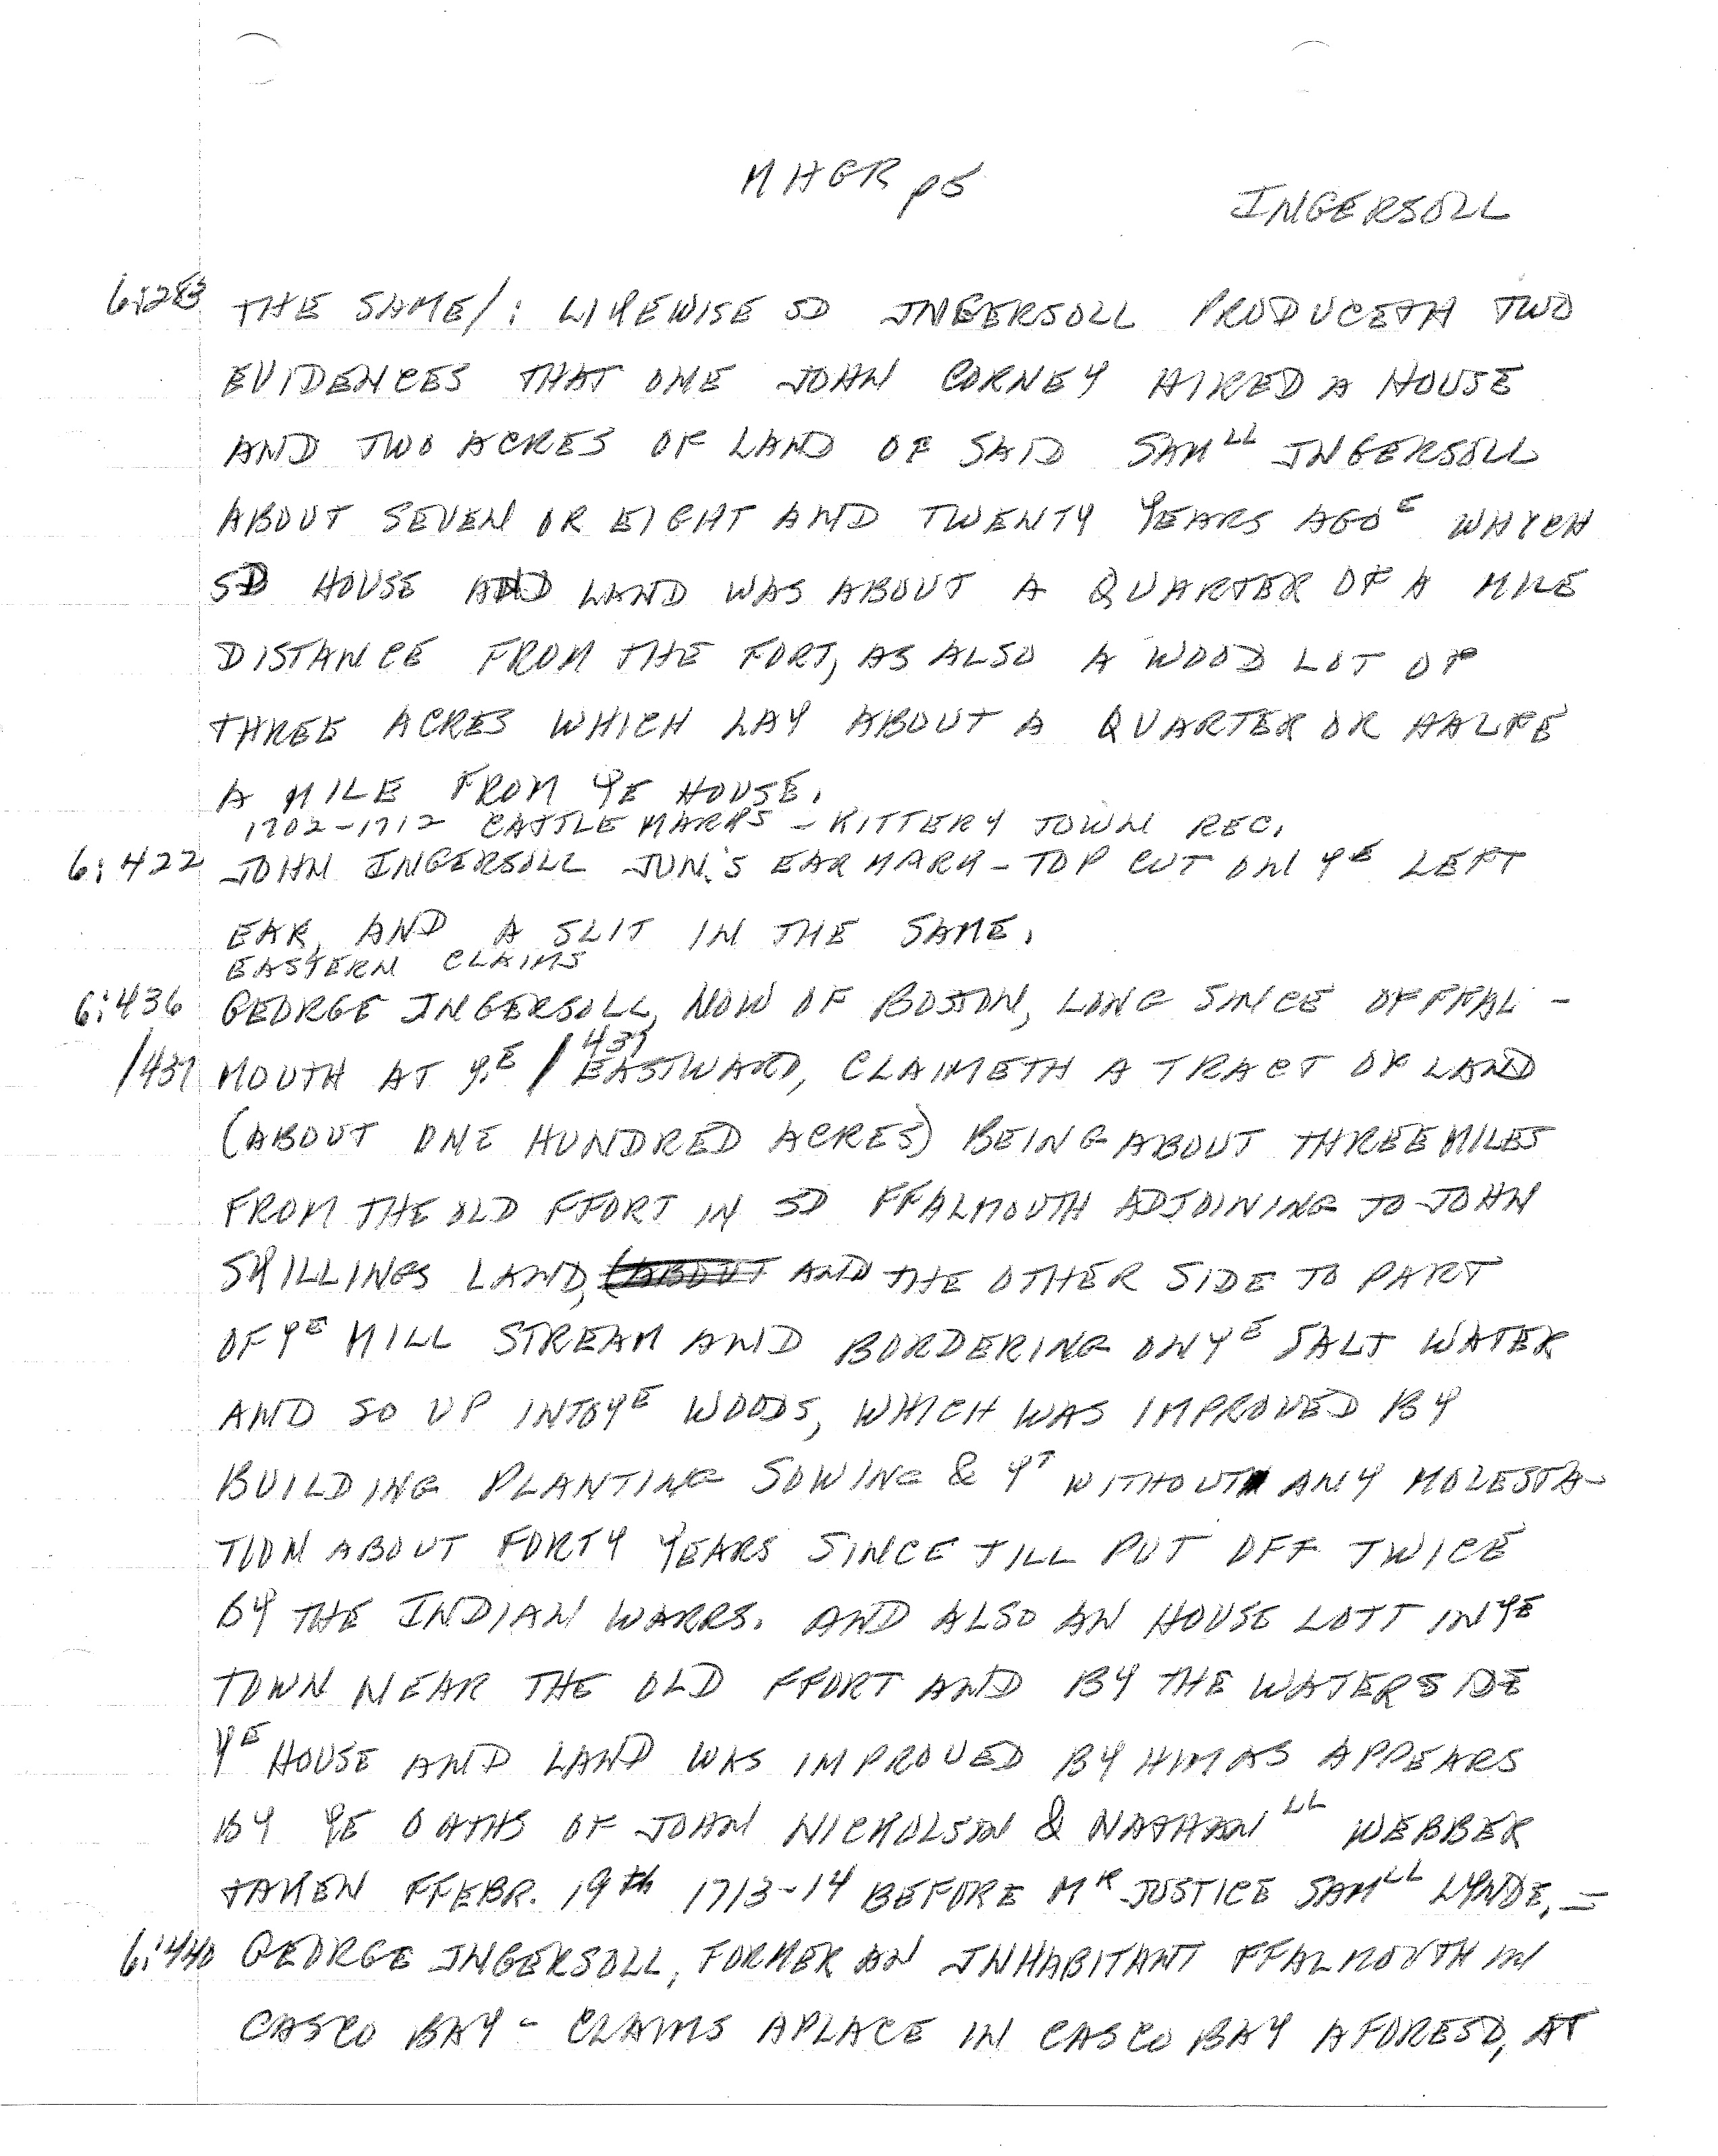 MHGR p5
INGERSOLL
6:283 THE SAME/: LIKEWISE SD INGERSOLL PRODUCETH TWO
EVIDENCES THAT ONE JOHN CORNEY HIRED A HOUSE
AND TWO ACRES OF LAND OF SAID SAMLL INGERSOLL
ABOUT SEVEN OR EIGHT AND TWENTY YEARS AGOE WHICH
SD HOUSE AND LAND WAS ABOUT A QUARTER OF A MILE
DISTANCE FROM THE FORT, AS ALSO A WOOD LOT OF
THREE ACRES WHICH LAY ABOUT A QUARTER OR HALFE
A MILE FROM YE HOUSE.
1702-1712 CATTLE MARKS - KITTERY TOWN REC.
6:422 JOHN INGERSOLL JUN.'S EAR MARK - TOP CUT ON YE LEFT
EAR, AND A SLIT IN THE SAME.
EASTERN CLAIMS
6:436 GEORGE INGERSOLL, NOW OF BOSTON, LONG SINCE OF FFAL-
/437 MOUTH AT YE /437 EASTWARD, CLAIMETH A TRACT OF LAND
(ABOUT ONE HUNDRED ACRES) BEING ABOUT THREE MILES
FROM THE OLD FFORT IN SD FFALMOUTH ADJOINING TO JOHN
SKILLINGS LAND, (ABOUT AND THE OTHER SIDE TO PART
OF YE MILL STREAM AND BORDERING ON YE SALT WATER
AND SO UP INTO YE WOODS, WHICH WAS IMPROVED BY
BUILDING PLANTING SOWING & YT WITHOUT ANY MOLESTA-
TION ABOUT FORTY YEARS SINCE TILL PUT OFF TWICE
BY THE INDIAN WARRS. AND ALSO AN HOUSE LOTT IN YE
TOWN NEAR THE OLD FFORT AND BY THE WATERSIDE
YE HOUSE AND LAND WAS IMPROVED BY HIM AS APPEARS
BY YE OATHS OF JOHN NICHOLSON & NATHANLL WEBBER
TAKEN FFEBR. 19th 1713-14 BEFORE MR JUSTICE SAMLL LYNDE. =
6:440 GEORGE INGERSOLL, FORMER AN INHABITANT FFALMOUTH IN
CASCO BAY - CLAIMS A PLACE IN CASCO BAY AFORESD, AT